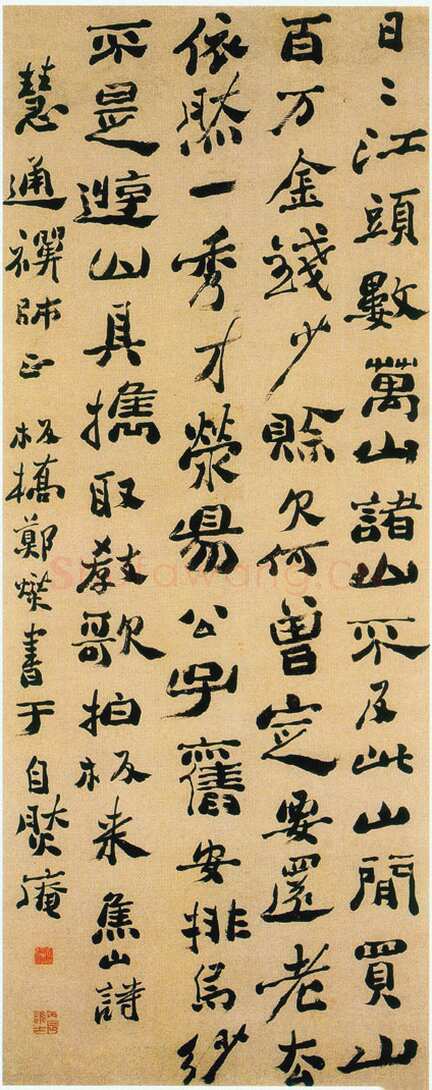 日〻江頭數萬山諸山不及此山閒買山
百万金錢少賒欠何曾定要還老去
依然一秀才滎昜公子舊安排烏紗
不是遊山具攜取教歌拍板来焦山詩
慧通禪師正板橋鄭燮書于自然庵